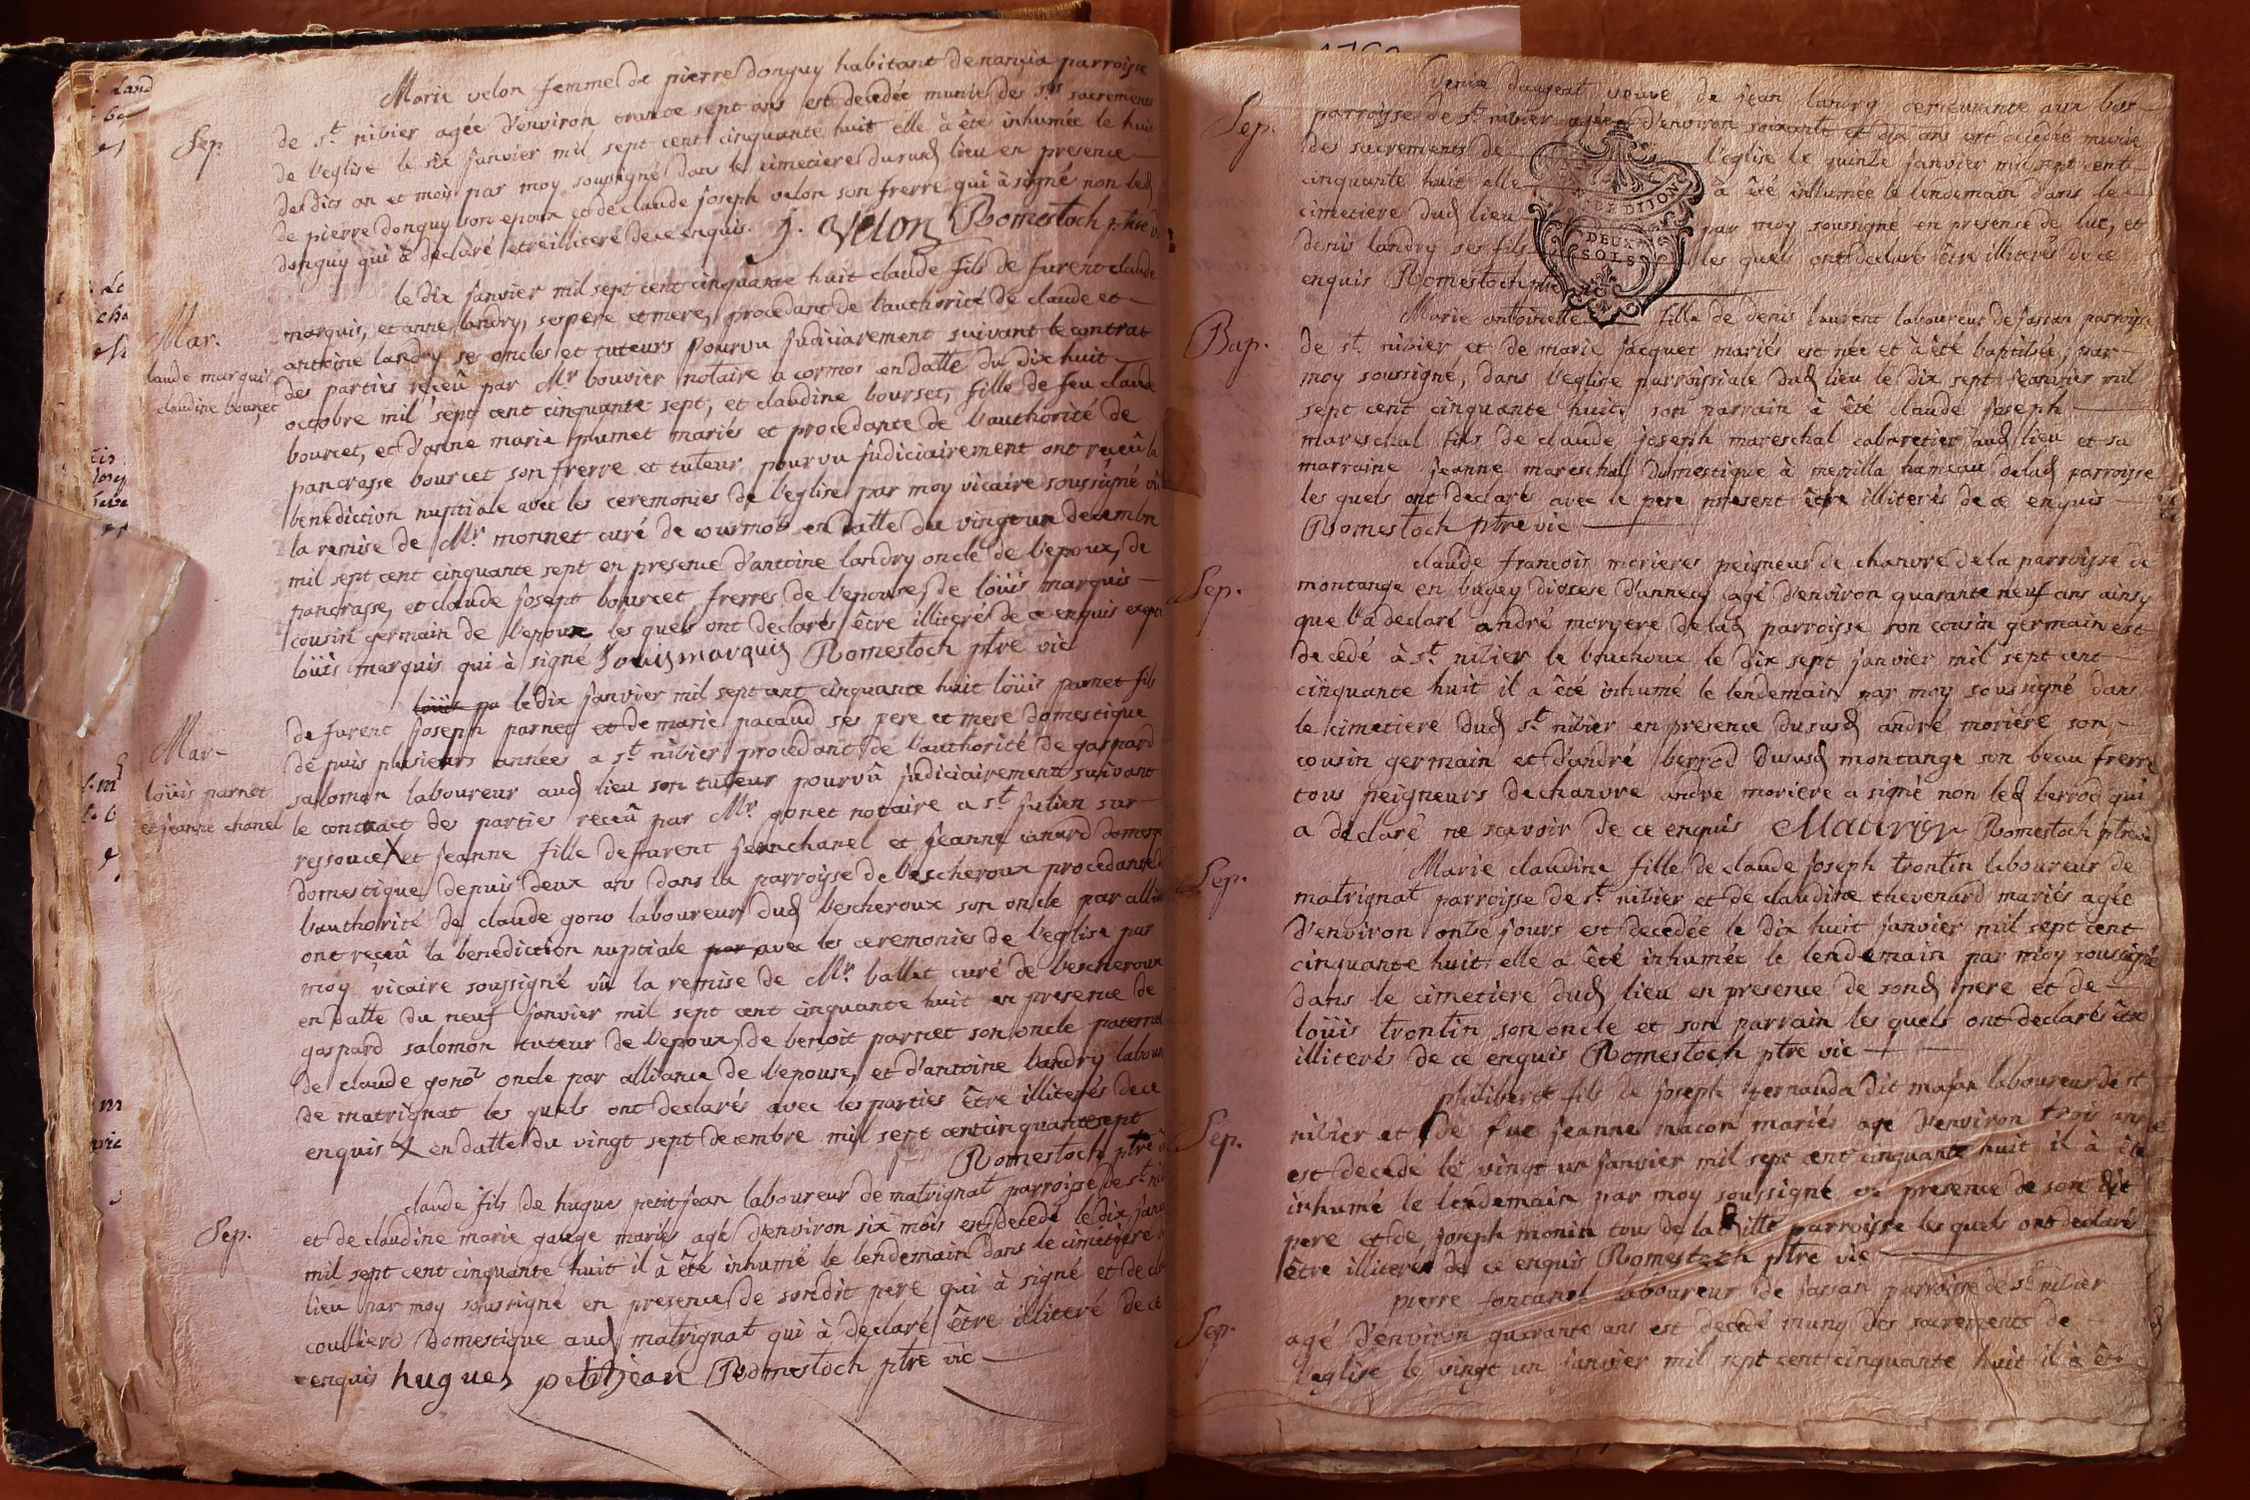 Marie velon femme de pierre donguy habitant de nancuia parroisse
Sep.
de st. nizier agée d'environ trante sept ans est decedée munie des sts sacrements
de l'eglise le six janvier mil sept cent cinquante huit elle à été inhumée le huit
des dits an et mois par moy soussigné dans le cimetiere du susd lieu en presence
de pierre donguy son epoux et de claude joseph velon son frerre qui à signé non led
donguy qui à declaré etre illiteré de ce enquis. j. velon Romestoch ptre vi
le dix janvier mil sept cent cinquante huit claude fils de furent claude
Mar.
claude marquis
claudine bourcet
marquis, et anne landry, ses pere et mere, procedant de l'authorité de claude et
antoine landry ses oncles et tuteurs pourvu judiciairement suivant le contrat
des parties reçeû par Mr bouvier notaire a cormos en datte du dix huit
octobre mil sept cent cinquante sept, et claudine bourcet, fille de feu claude
bourcet, et d'anne marie plumet mariés et procedante de l'authorité de
pancrasse bourcet son frerre et tuteur pourvu judiciairement ont reçeû la
benediction nuptiale avec les ceremonies de l'eglise par moy vicaire soussigné vû
la remise de Mr monnet curé de courmos en datte du vingt un decembre
mil sept cent cinquante sept en presence d'antoine landry oncle de l'epoux, de
pancrasse, et claude joseph bourcet frerres de l'epouse, de loüis marquis
cousin germain de l'epoux les quels ont declarés être illiterés de ce enquis excepté
loüis marquis qui à signé Louis marquis Romestoch ptre vic
le dix janvier mil sept cent cinquante huit loüis parnet fils
Mar
loüis parnet
et jeanne chanel
de furent joseph parnet et de marie pacaud ses pere et mere domestique
depuis plusieurs années a st. nizier procedant de l'authorité de gaspard
salomon laboureur aud lieu son tuteur pourvû judiciairement suivant
le contract des parties reçeû par Mr. gonet notaire a st julien sur
ressouce X et jeanne fille de furent jean chanel et jeanne canard domesti
domestique depuis deux ans dans la parroisse de lescheroux procedante
l'authorité de claude gono laboureur dud lescheroux son oncle par allia
ont reçeû la benediction nuptiale par avec les ceremonies de l'eglise par
moy vicaire soussigné vû la remise de Mr. ballet curé de lescheroux
en datte du neuf janvier mil sept cent cinquante huit en presence de
gaspard salomon tuteur de l'epoux, de benoit parnet son oncle paternel
de claude gono oncle par alliance de l'epouse, et d'antoine landry labour
de matrignat les quels ont declarés avec les parties être illiterés de ce
enquis X en datte du vingt sept decembre mil sept cent cinquante sept
Romestoch ptre
claude fils de hugues petit jean laboureur de matrignat parroisse de st ni
Sep.
et de claudine marie gauge mariés agé d'environ six mois est decedé le dix janv
mil sept cent cinquante huit il à été inhumé le lendemain dans le cimetiere
lieu par moy soussigné en presence de son dit pere qui à signé et de
coullierd domestique aud matrignat qui à declaré être illiteré de ce
enquis hugues petit jean Romestoch ptre vic
daujeat veuve de jean landry demeurante aux
Sep.
parroisse de st. nizier agée d'environ soixante et dix ans est decedée munie
des sacrements de l'eglise le quinze janvier mil sept cent
cinquante huit elle à été inhumée le lendemain dans le
cimetiere dud lieu par moy soussigné en presence de luc, et
denis landry ses fils les quels ont declaré être illiterés de ce
enquis Romestoch ptre vic
DE DIJON
DEUX
SOLS
Bap.
Marie antoinette fille de denis laurent laboureur de jassan parroisse
de st. nizier et de marie jacquet mariés est née et à été baptisée, par
moy soussigné, dans l'eglise parroissiale dud lieu le dix sept jeanvier mil
sept cent cinquante huit, son parrain à été claude joseph
mareschal fils de claude joseph mareschal cabaretier aud lieu et sa
marraine jeanne mareschal domestique à memilla hameau de lad parroisse
les quels ont declarés avec le pere present être illiterés de ce enquis
Romestoch ptre vic
claude francois morieres peigneur de chanvre de la parroisse de
Sep.
montange en bugey diocese d'annecy agé d'environ quarante neuf ans ainsy
que l'a declaré andré moryere de lad parroisse son cousin germain est
decedé à st. nizier le bouchoux le dix sept janvier mil sept cent
cinquante huit il a été inhumé le lendemain par moy soussigné dans
le cimetiere dud st. nizier en presence du susd andré moriére son
cousin germain et d'andré berrod du susd montange son beau frerre
tous peigneurs de chanvre andre moriere a signé non led berrod qui
a declaré ne scavoir de ce enquis Romestoch ptre vic
Sep.
Marie claudine fille de claude joseph trontin laboureur de
matrignat parroisse de st. nizier et de claudine thevenard mariés agée
d'environ onze jours est decedée le dix huit janvier mil sept cent
cinquante huit elle a été inhumée le lendemain par moy soussigné
dans le cimetiere dud lieu en presence de sond pere et de
loüis trontin son oncle et son parrain les quels ont declarés être
illiterés de ce enquis Romestoch ptre vic
philibert fils de joseph dit majan laboureur de st
Sep.
nizier et de fue jeanne macon mariés age d'environ trois ans
est decedé le vingt un janvier mil sept cent cinquante huit il à été
inhumé le lendemain par moy soussigné en presence de son dit
pere et de joseph monin tous de la ditte parroisse les quels ont declaré
être illiterés de ce enquis Romestoch ptre vic
Sep.
pierre fontanel laboureur de jassan parroisse de st nizier
agé d'environ quarante ans est decedé muny des sacrements de
l'eglise le vingt un janvier mil sept cent cinquante huit il à ét